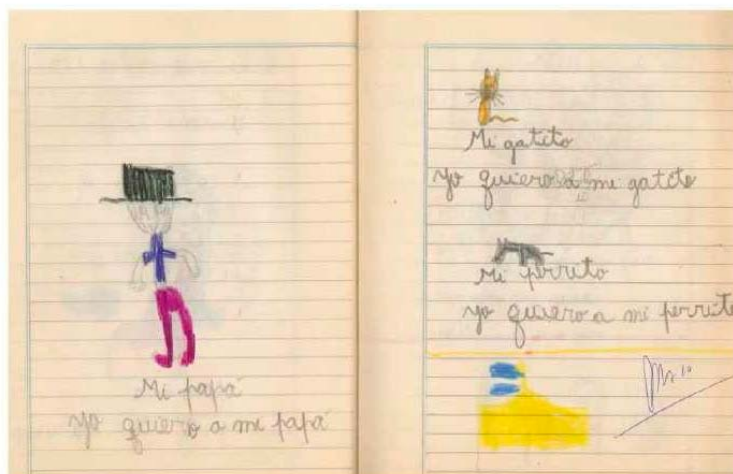 Mi papá
Yo quiero a mi papá
Mi gatito
Yo quiero a mi gatito
Mi perrito
Yo quiero a mi perrito